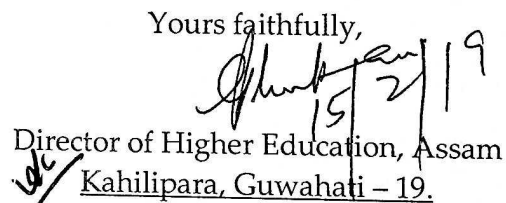 Yours faithfully,
15/2/19
Director of Higher Education, Assam
Kahilipara, Guwahati – 19.